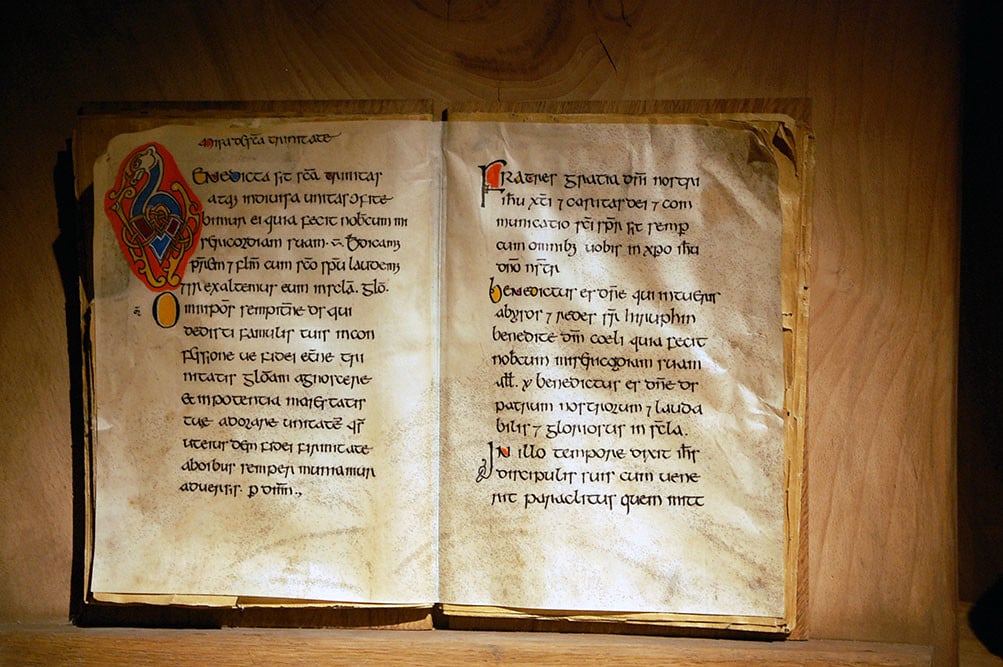 Missa de scā trinitate
Benedicta sit scā trinitas
atq; indiuisa unitas c̄fite
bimur ei quia fecit nobcum mi
sericordiam suam. Bndicam;
pr̄em ⁊ fl̄m cum sc̄o sp̄u laudem;
exaltemus eum in sc̄la. glo.
Omnipōs sempitn̄e ds qui
dedisti famulis tuis incon
fessione ue fidei etn̄e tri
nitatis glōam agnoscere
Et in potentia maiestatis
tue adorare unitatē qs̄
ut eius dem fidei firmitate
ab oibus semper muniamur
aduersis. p dn̄m.,
Fratres gratia dn̄i nostri
ih̄u xp̄i ⁊ caritas dei ⁊ com
municatio sc̄i sp̄s sit semp
cum omnib; uobis in xpo ih̄u
dn̄o nr̄i
benedictus es dn̄e qui intueris
abysos ⁊ sedes sr̄ hiruphin
benedicite dm̄ coeli quia fecit
nobcum misericordiam suam
all. ℣ benedictus es dn̄e ds
patrum nostrorum ⁊ lauda
bilis ⁊ gloriosus in sc̄la.
In illo tempore dixit ih̄s
discipulis suis cum uene
rit paraclitus quem mitt